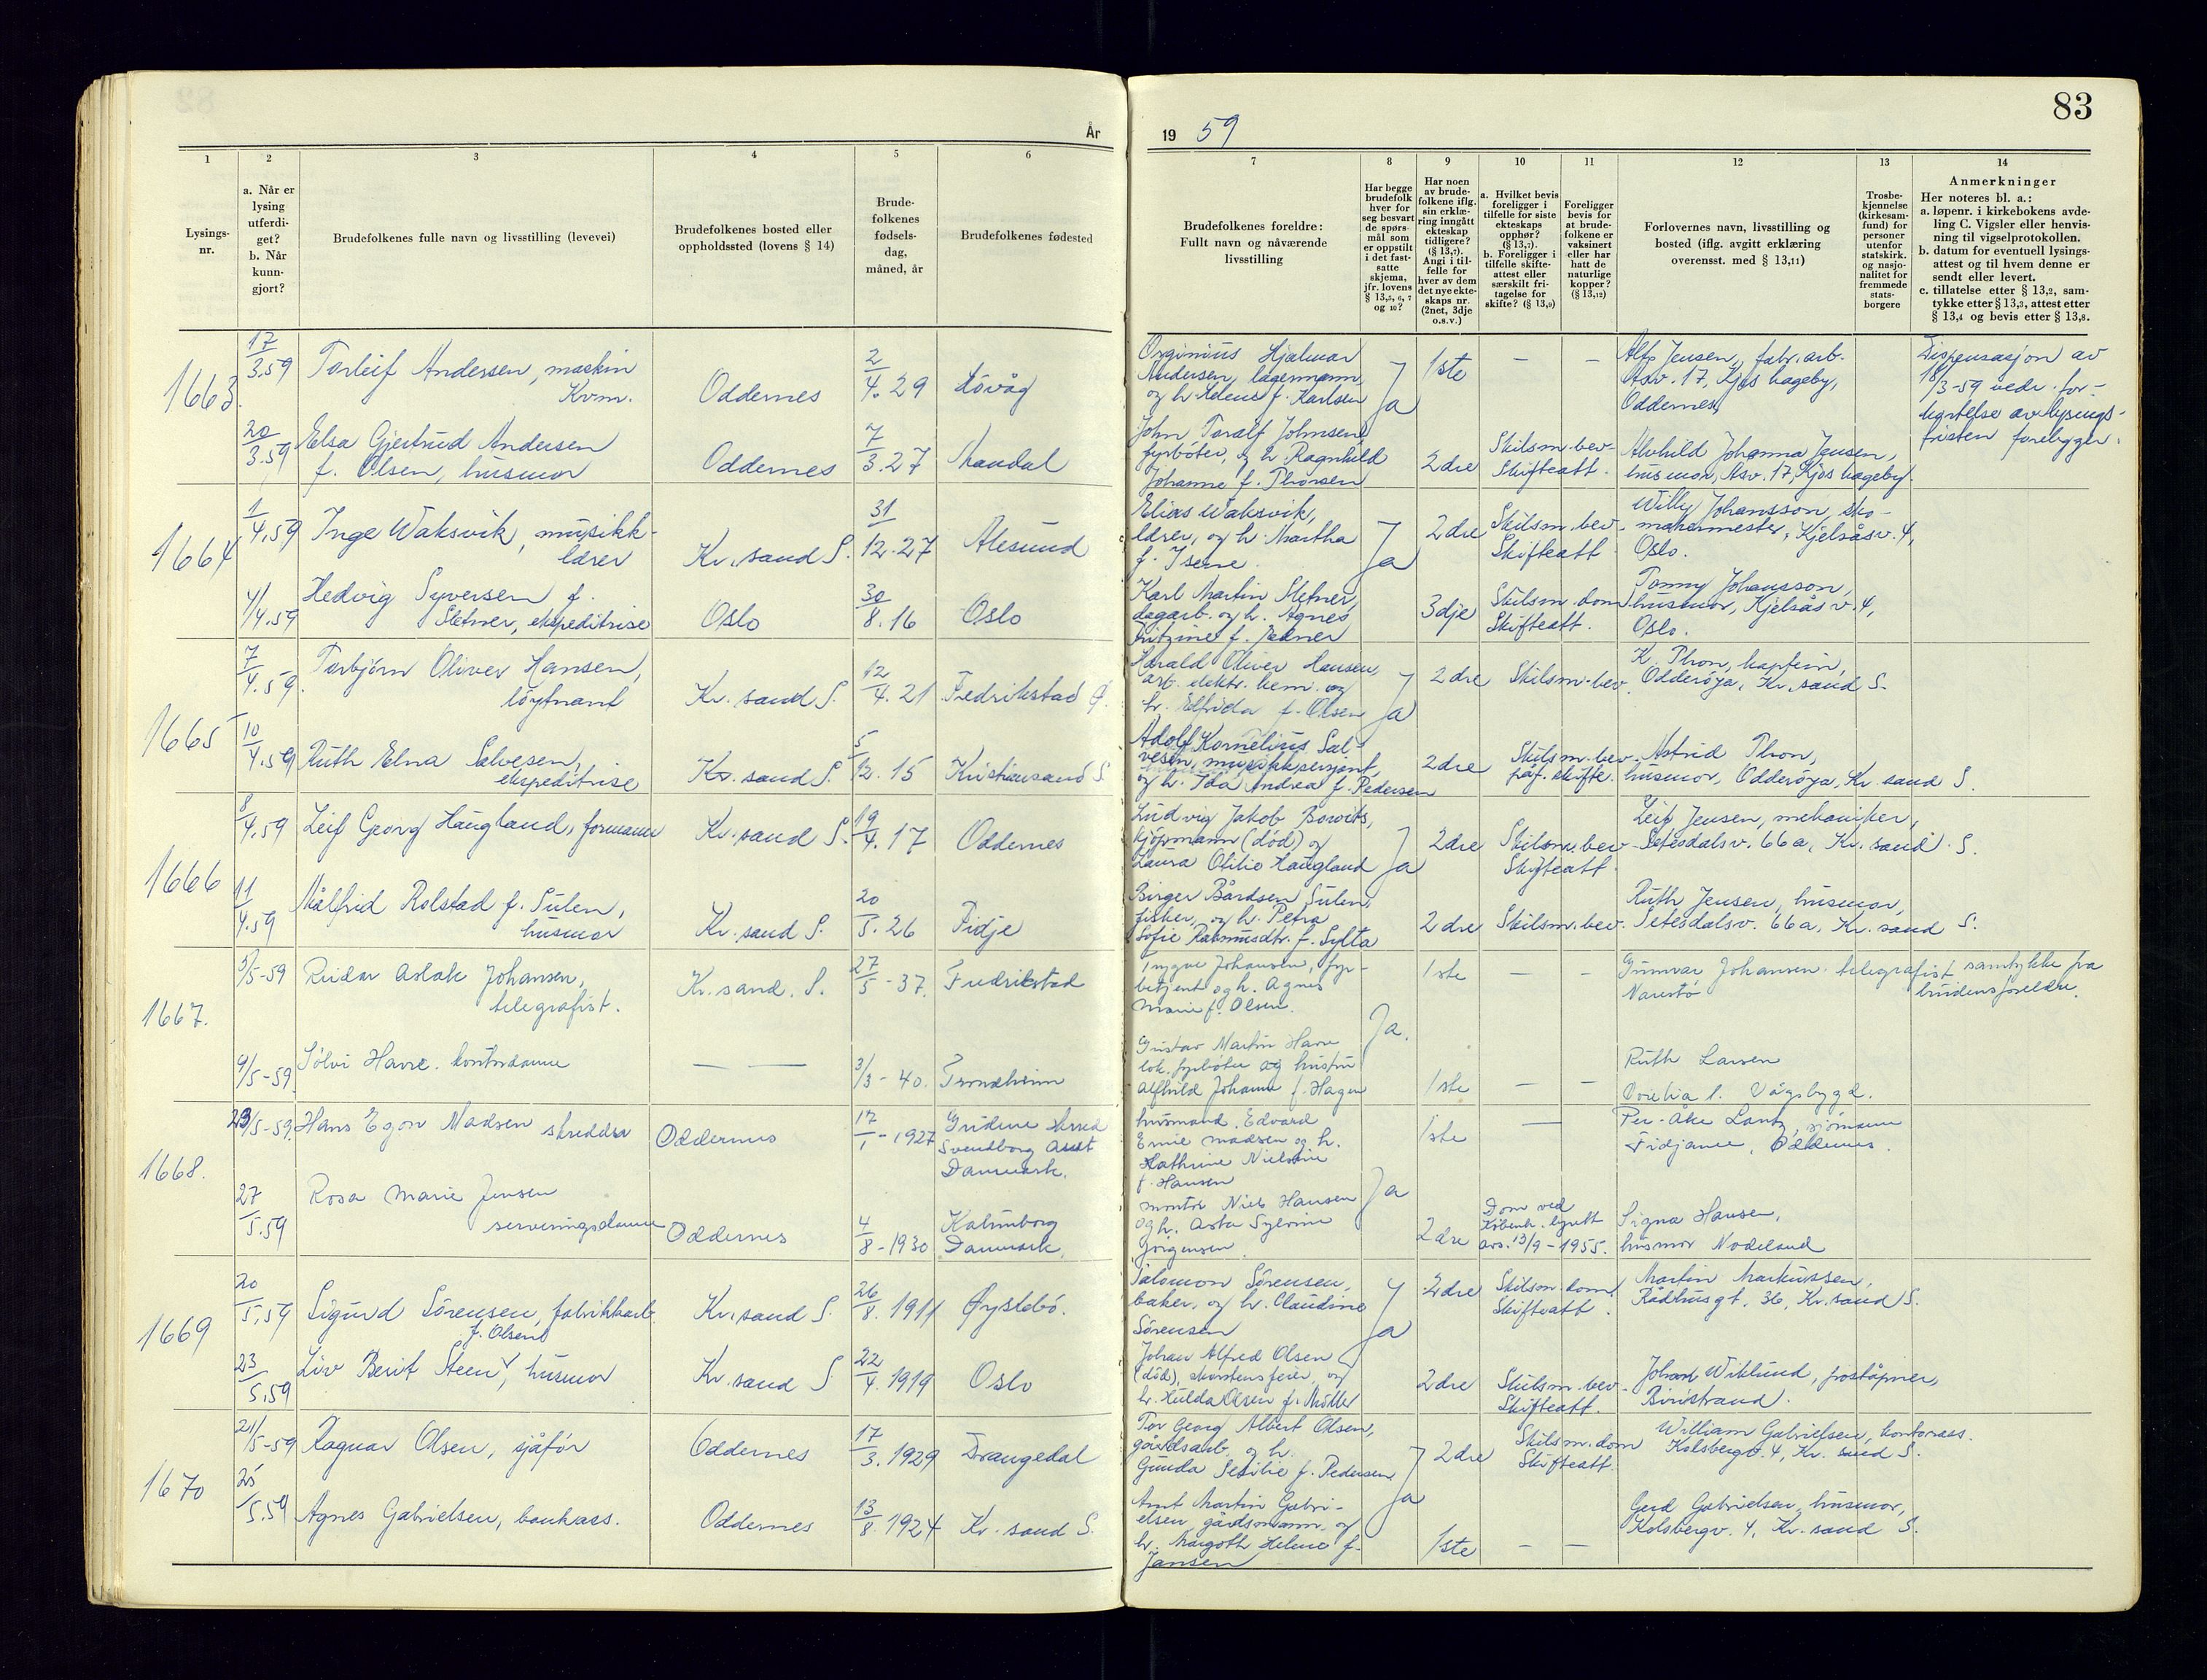 År
19 59
83
1
2
3
4
5
6
7
8
9
10
11
12
13
14
Lysings-
nr.
a. Når er
lysing
utferdi-
get?
b. Når
kunn-
gjort?
Brudefolkenes fulle navn og livsstilling (levevei)
Brudefolkenes bosted eller
oppholdssted (lovens § 14)
Brude-
folkenes
fødsels-
dag,
måned, år
Brudefolkenes fødested
Brudefolkenes foreldre:
Fullt navn og nåværende
livsstilling
Har begge
brudefolk
hver for
seg besvart
de spørs-
mål som
er oppstilt
i det fast-
satte
skjema,
jfr. lovens
§ 13,5, 6, 7
og 10?
Har noen
av brude-
folkene iflg.
sin erklæ-
ring inngått
ekteskap
tidligere?
(§ 13,7).
Angi i til-
felle for
hver av dem
det nye ekte-
skaps nr.
(2net, 3dje
o.s.v.)
a. Hvilket bevis
foreligger i
tilfelle for siste
ekteskaps
opphør?
(§ 13,7).
b. Foreligger i
tilfelle skifte-
attest eller
særskilt fri-
tagelse for
skifte? (§ 13,9)
Foreligger
bevis for
at brude-
folkene er
vaksinert
eller har
hatt de
naturlige
kopper?
(§ 13,12)
Forlovernes navn, livsstilling og
bosted (iflg. avgitt erklæring
overensst. med § 13,11)
Trosbe-
kjennelse
(kirkesam-
fund) for
personer
utenfor
statskirk.
og nasjo-
nalitet for
fremmede
stats-
borgere
Anmerkninger
Her noteres bl. a.:
a. løpenr. i kirkebokens avde-
ling C. Vigsler eller henvis-
ning til vigselprotokollen.
b. datum for eventuell lysings-
attest og til hvem denne er
sendt eller levert.
c. tillatelse etter § 13,2, sam-
tykke etter § 13,3, attest etter
§ 13,4 og bevis etter § 13,8.
1663
17/3.59 Torleif Andersen, maskin
Kvm.
Oddernes
2/4.29 Hövåg
Hjalmar
Andersen, lagermann,
og h. Helene f. Karlsen
Ja
1ste — —
Alf Jensen, fabr.arb.
Asv. 17, Kjos hageby,
Oddernes,
Dispensasjon av
18/3-59 vedr. for-
kortelse av lysings-
fristen foreligger.
20/3.59 Elsa Gjertrud Andersen
f. Olsen, husmor
Oddernes
7/3.27 Mandal
John Toralf Johnsen,
fyrböter, og h. Ragnhild
Johanne f. Thorsen
2dre
Skilsm.bev.
Skifteatt.
Alvhild Johanna Jensen,
husmor, Asv. 17, Kjos hageby.
1664
1/4.59 Inge Waksvik, musikk-
lærer
Kr.sand S.
31/12.27 Ålesund
Elias Waksvik,
lærer, og h. Martha
f. Isene
Ja
2dre
Skilsm.bev.
Skifteatt.
Willy Johansson, sko-
makermester, Kjelsåsv. 4,
Oslo.
4/4.59 Hedvig Syversen f.
Sletner, ekspeditrise
Oslo
30/8.16 Oslo
Karl Martin Sletner,
dagarb. og h. Agnes
3dje
Skilsm.dom
Skifteatt.
Tonny Johansson,
husmor, Kjelsåsv. 4,
Oslo.
1665
7/4.59 Torbjörn Oliver Hansen,
löytnant
Kr.sand S.
12/4.21 Fredrikstad
Harald Oliver Hansen,
arb. elektr. kem. og
h. Elfrida f. Olsen
Ja
2dre
Skilsm.bev.
K. Thon, kaptein,
Odderöya, Kr.sand S.
10/4.59 Ruth Elna Salvesen,
ekspeditrise
Kr.sand S.
5/12.15 Kristiansand S.
Adolf Kornelius Sal-
vesen, musikksersjant,
og h. Ida Andrea f. Pedersen
2dre
Skilsm.bev.
påg. skifte.
Astrid Thon,
husmor, Odderöya, Kr.sand S.
1666
8/4.59 Leif Georg Haugland, formann
Kr.sand S.
19/4.17 Oddernes
Ludvig Jakob Bowits,
kjöpmann (död) og
Laura Otilie Haugland
Ja
2dre
Skilsm.bev.
Skifteatt.
Leif Jensen, mekaniker,
Setesdalsv. 66a, Kr.sand S.
11/4.59 Målfrid Rolstad f. Sulen,
husmor
Kr.sand S.
20/5.26 Fidje
Birger Bårdsen Sulen,
fisker, og h. Petra
Sofie Rasmusdtr. f. Sylta
2dre
Skilsm.bev.
Ruth Jensen, husmor,
Setesdalsv. 66a, Kr.sand S.
1667.
5/5-59 Reidar Aslak Johansen,
telegrafist.
Kr.sand. S.
27/5-37. Fredrikstad
Trygve Johansen, fyr-
betjent og h. Agnes
Marie f. Olsen.
Ja.
1ste — —
Gunnar Johansen telegrafist
Narestö
samtykke fra
brudens foreldre.
9/5-59 Sölvi Havre. kontordame
— —
3/3-40. Trondheim
Gustav Martin Havre
lok. fyrböter og hustru
Alfhild Johanne f. Hagen
1ste — —
Ruth Larsen
Vågsbygd.
1668.
23/5-59. Hans Egon Madsen skredder
Oddernes
17/1-1927
Svendborg Amt
Danmark.
husmand. Edvard
Emil Madsen og h.
Kathrine Nielsine
f. Hansen
Ja
1ste —
Per-Åke Lantz, sjömann
Fidjane, Oddernes.
27/5.59 Rosa Marie Jensen
serveringsdame
Oddernes
4/8-1930 Kalundborg
Danmark.
montör Niels Hansen
og h. Asta Sylvine
Jörgensen
2dre
Dom ved
Köbenh. byrett
avs. 13/9-1955.
Signa Hansen,
husmor Nodeland
1669
20/5.59 Sigurd Sörensen, fabrikkarb.
Kr.sand S.
26/8.1911 Øyslebö.
Salomon Sörensen,
baker, og h. Claudine
Sörensen
Ja
2dre
Skilsm.dom
Skifteatt.
Martin Markussen,
Rådhusgt. 36, Kr.sand S.
f. Olsen
23/5.59 Liv Berit Steen, husmor
Kr.sand S
22/4.1919 Oslo
Johan Alfred Olsen
(död), skorstensfeier, og
h. Hulda Olsen f. Möller
2dre
Skilsm.bev.
Skifteatt.
Johan Wiklund, poståpner,
Biristrand.
1670
21/5-59 Ragnar Olsen, sjåför
Oddernes
17/3.1929 Drangedal
Tor Georg Albert Olsen,
gårdsarb. og h.
Gunda Sesilie f. Pedersen
Ja
2dre
Skilsm.dom
Skifteatt.
William Gabrielsen, kontorass.
Kolsbergv. 4, Kr.sand S.
25/5.59 Agnes Gabrielsen, bankass.
Oddernes
13/8.1924 Kr.sand S.
Arnt Martin Gabri-
elsen, gårdsmann, og
h. Margoth Helene f.
Jansen
1ste — —
Gerd Gabrielsen, husmor,
Kolsbergv. 4, Kr.sand S.